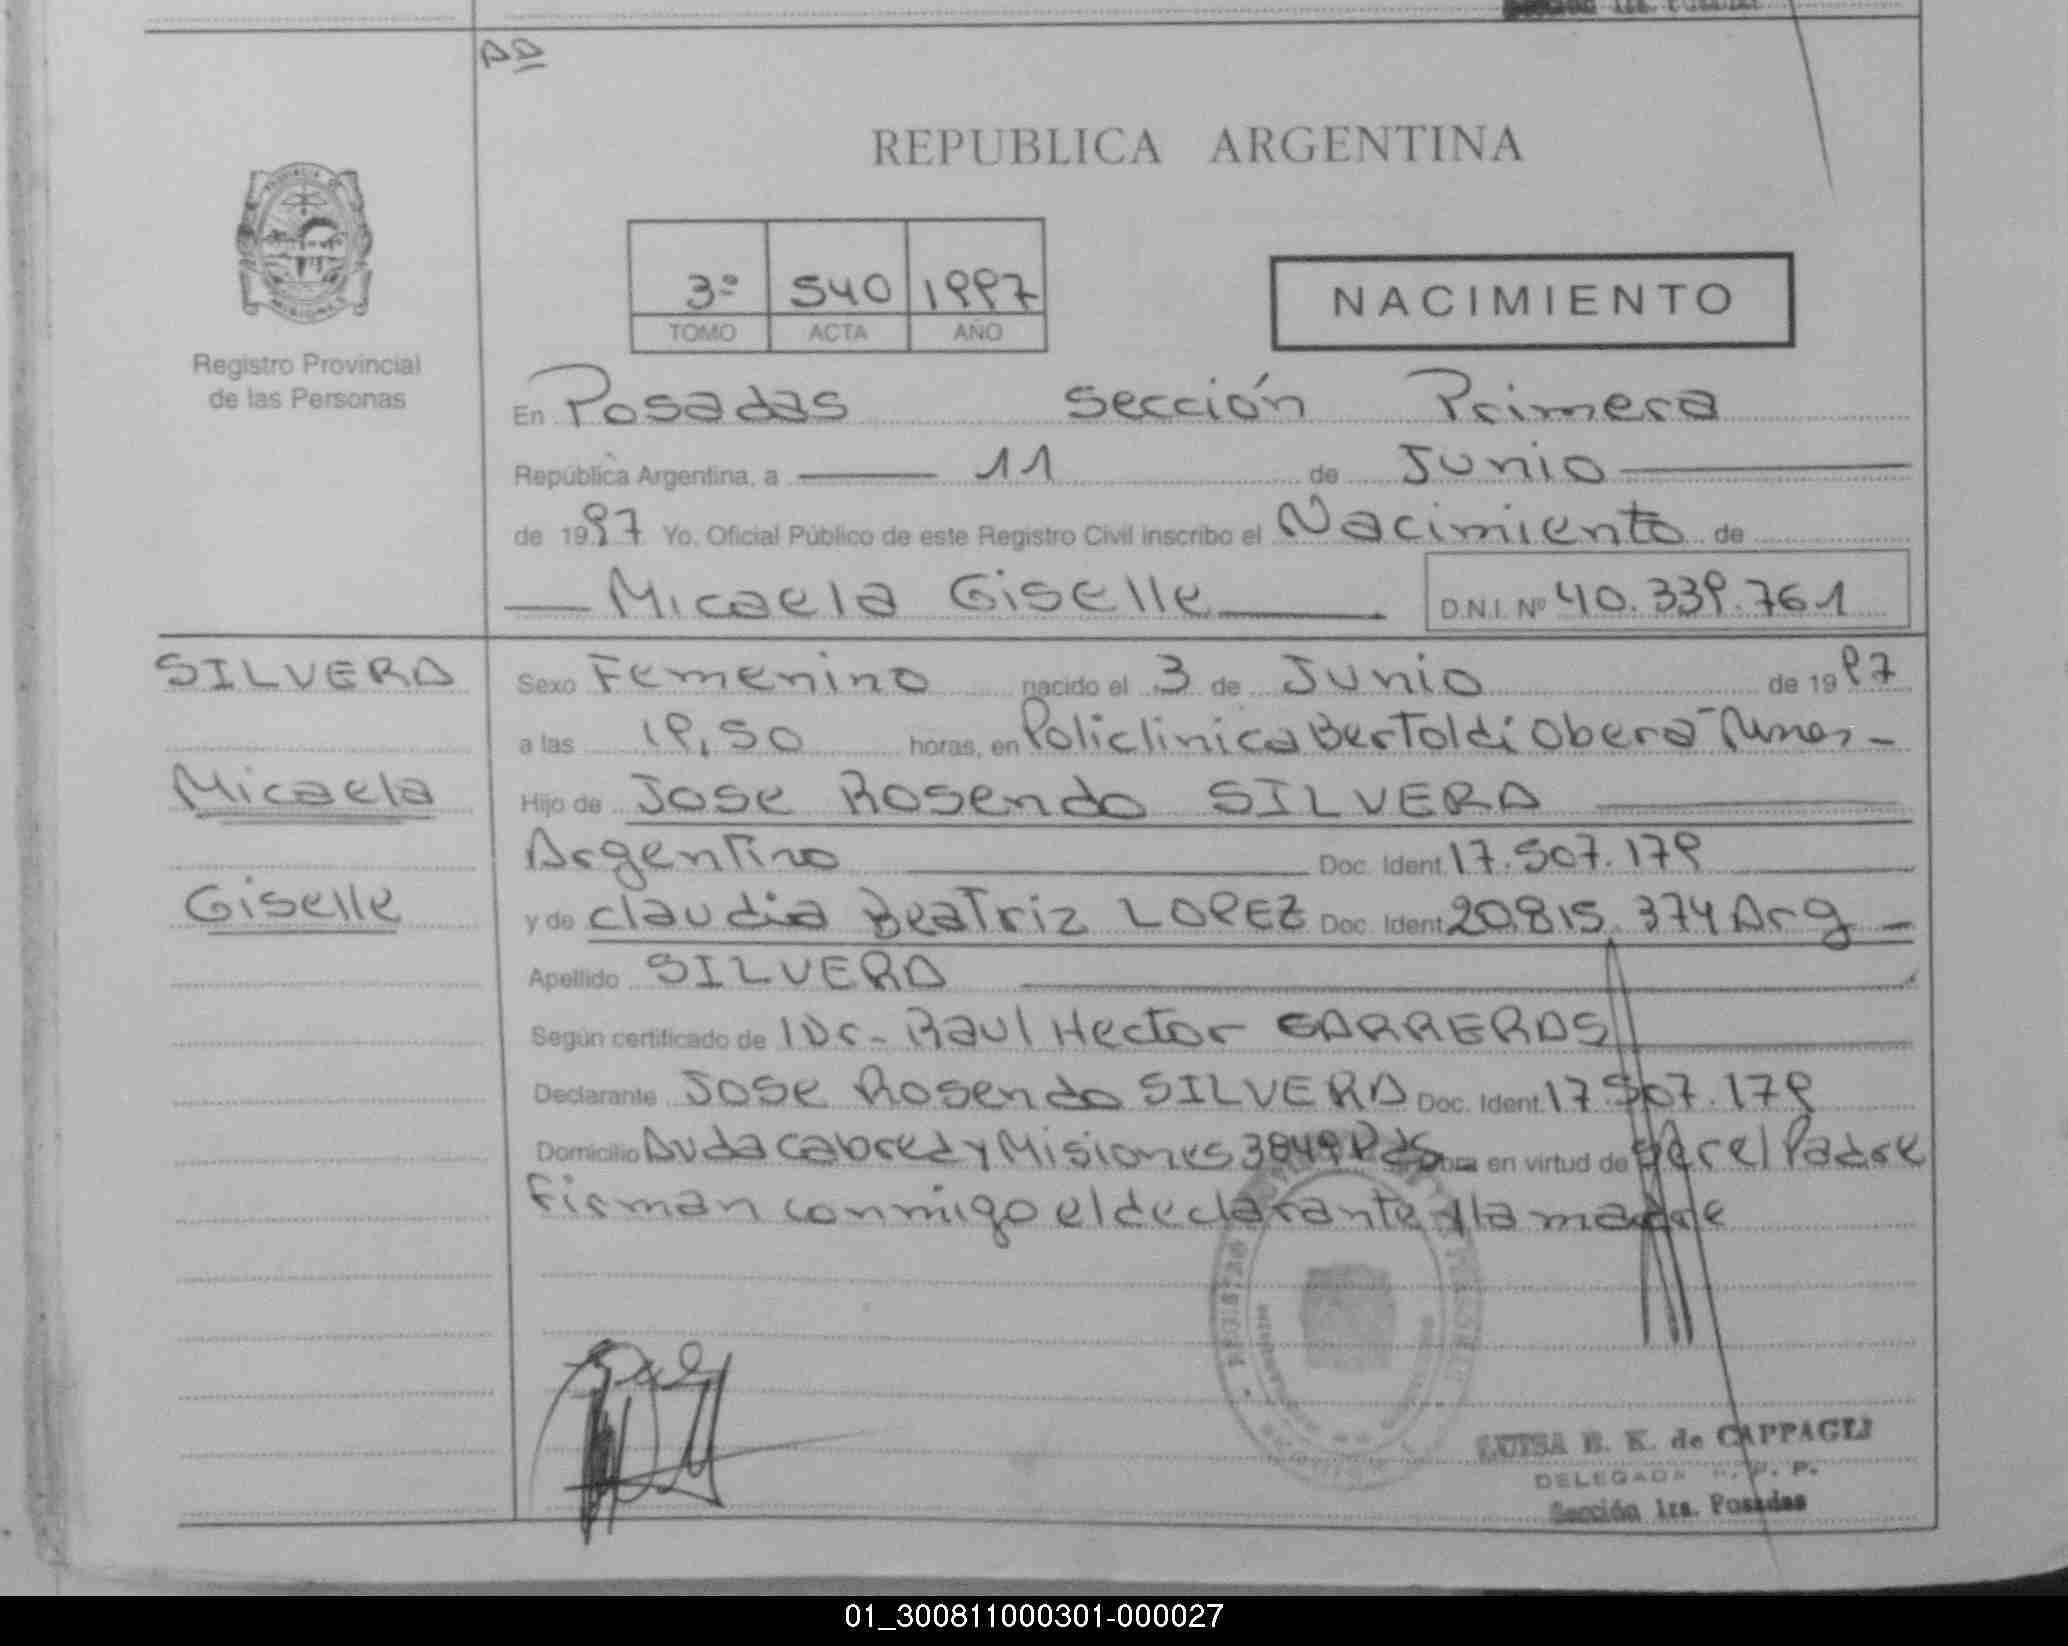 Sección 1ra. Posadas
AD
REPUBLICA ARGENTINA
3º 540 1997
TOMO ACTA AÑO
NACIMIENTO
Registro Provincial
de las Personas
En Posadas Sección Primera
República Argentina, a 11 de Junio
de 1997 Yo, Oficial Público de este Registro Civil inscribo el Nacimiento de
Micaela Giselle D.N.I. Nº 40.339.761
SILVERA
Micaela
Giselle
Sexo Femenino nacido el 3 de Junio de 1997
a las 19,50 horas, en Policlinica Bertoldi Obera
Hijo de Jose Rosendo SILVERA
Argentino Doc. Ident. 17.507.179
y de Claudia Beatriz LOPEZ Doc. Ident. 20.815.374 Arg
Apellido SILVERA
Según certificado de Dr. Raul Hector CARRERAS
Declarante Jose Rosendo SILVERA Doc. Ident. 17.507.179
Domicilio Avda Cabred y Misiones 3849 Pdas Obra en virtud de ser el Padre
Firman conmigo el declarante y la madre
LUISA B. K. de CAPPAGLI
DELEGADA R. P. P.
Sección 1ra. Posadas
01_300811000301-000027